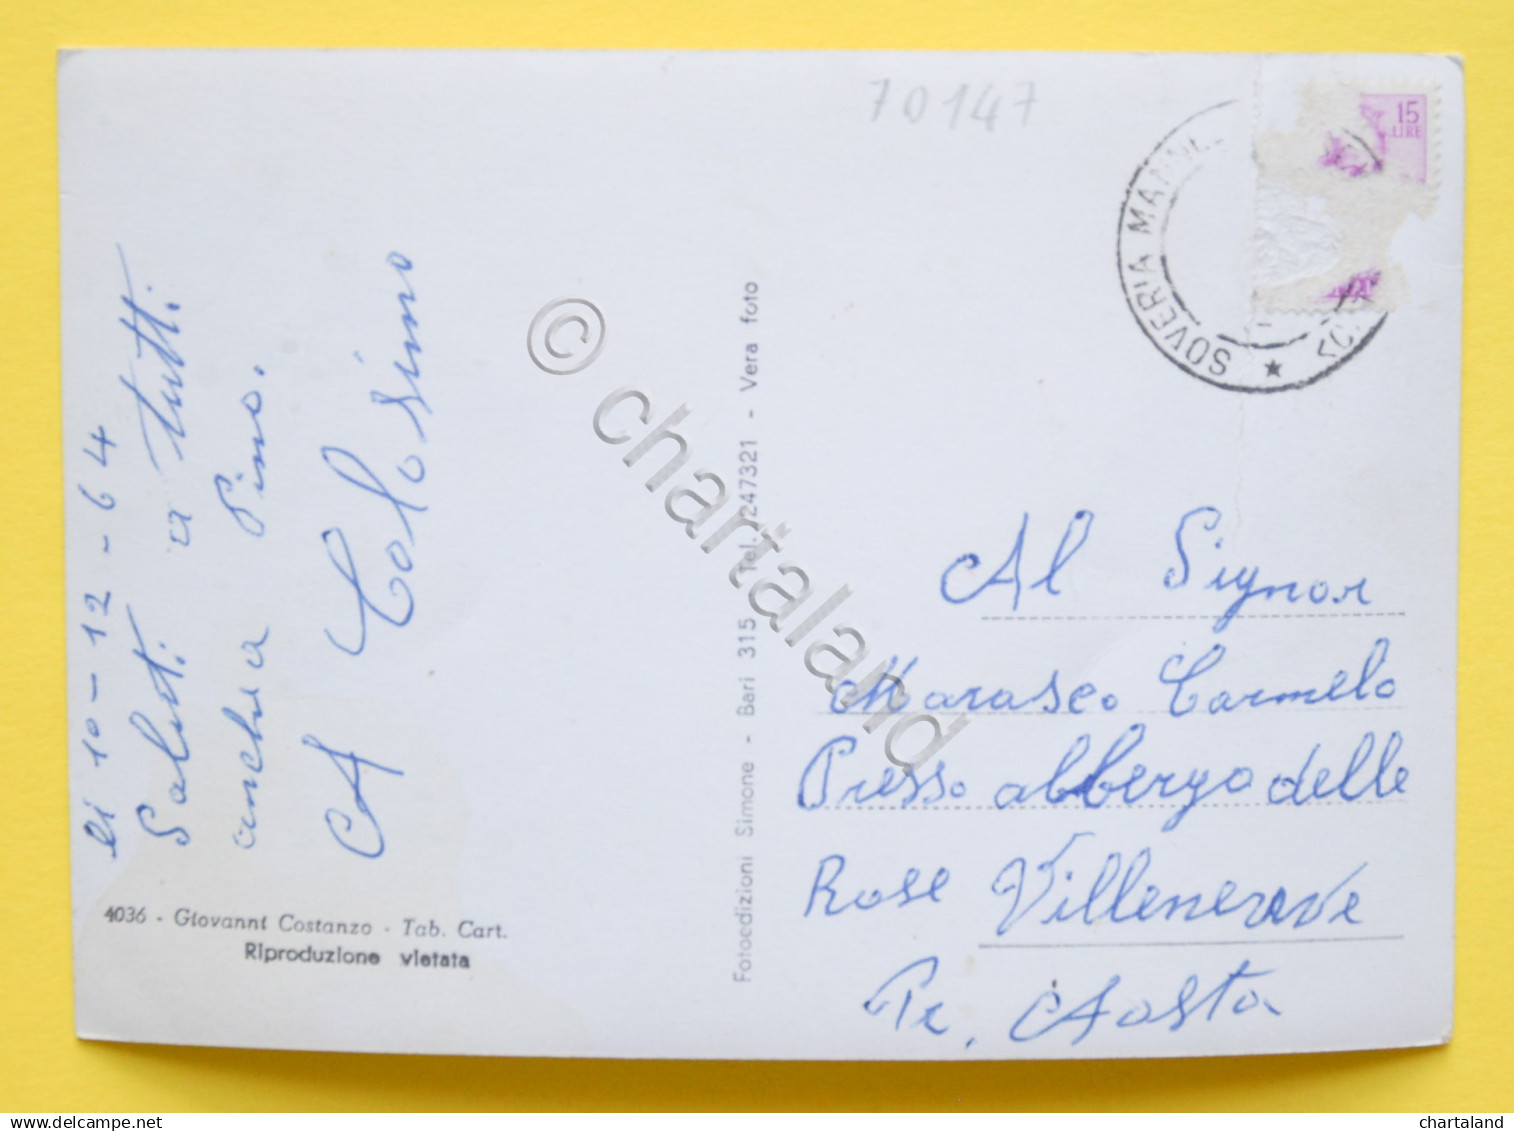 70147
15
LIRE
SOVERIA MANNE
li 10-12-64
Saluti a tutti
anche a Pino.
A Colosimo
4036 - Giovanni Costanzo - Tab. Cart.
Riproduzione vietata
Fotoedizioni Simone - Bari 315 Tel. 247321 - Vera foto
Al Signor
Marasco Carmelo
Presso albergo delle
Rose Villenerve
Pr. Aosta
© chartaland
www.delcampe.net
chartaland